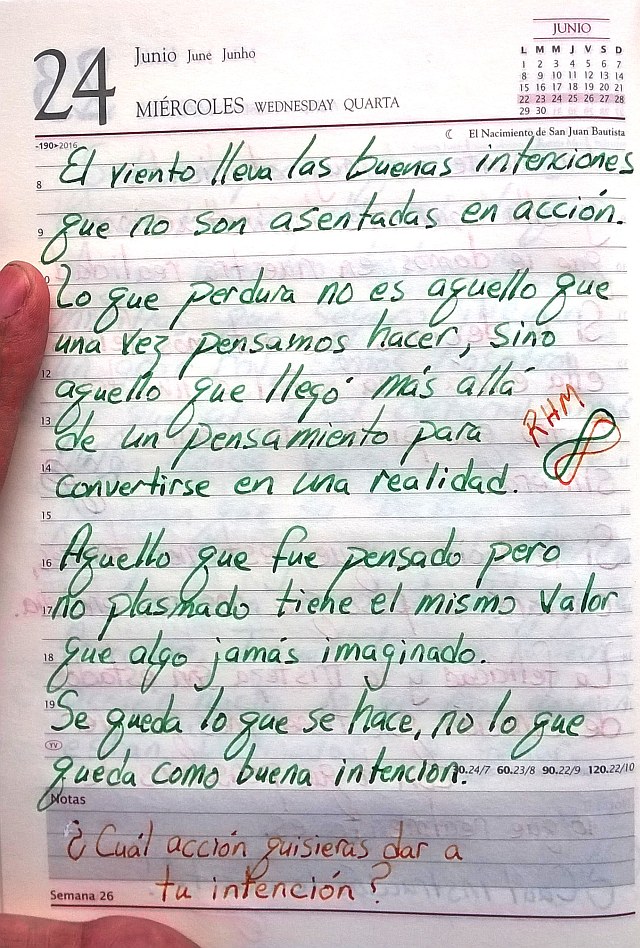 JUNIO
L M M J V S D
1 2 3 4 5 6 7
8 9 10 11 12 13 14
15 16 17 18 19 20 21
22 23 24 25 26 27 28
29 30
24
Junio June Junho
MIÉRCOLES WEDNESDAY QUARTA
-190>2016
El Nacimiento de San Juan Bautista
8 El viento lleva las buenas intenciones
9 que no son asentadas en acción.
Lo que perdura no es aquello que
una vez pensamos hacer, sino
12 aquello que llegó más allá
13 de un pensamiento para
RHM
14 convertirse en una realidad.
15
16 Aquello que fue pensado pero
17 no plasmado tiene el mismo valor
18 que algo jamás imaginado.
19 Se queda lo que se hace, no lo que
TV
queda como buena intencion.
30.24/7 60.23/8 90.22/9 120.22/10
Notas
¿Cuál acción quisieras dar a
tu intención?
Semana 26